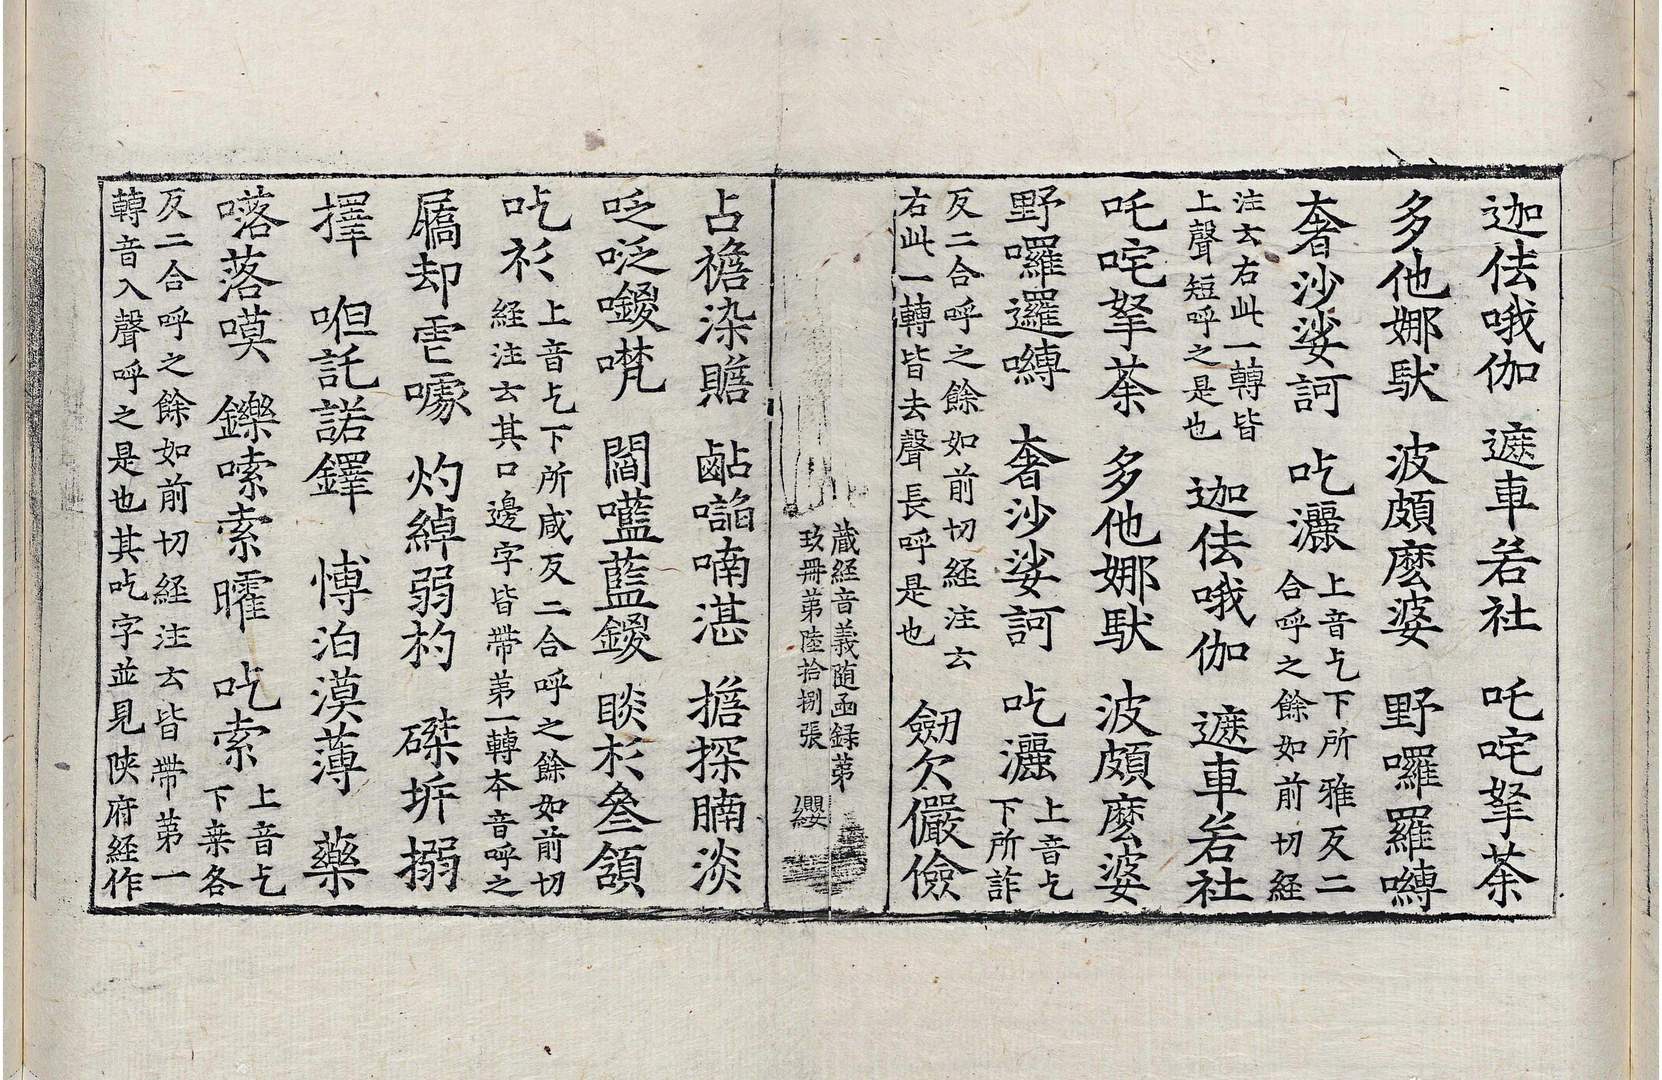 迦佉哦伽　遮車若社　吒咤拏荼
多他娜馱　波頗麽婆　野囉羅嚩
奢沙娑訶　吃灑上音乞下所雅反二合呼之餘如前切経
注云右此一轉皆上聲短呼之是也　迦佉哦伽　遮車若社
吒咤拏荼　多他娜馱　波頗麽婆
野囉邏嚩　奢沙娑訶　吃灑上音乞下所詐
反二合呼之餘如前切経注云右此一轉皆去聲長呼是也　劒欠儼儉
蔵経音義随函録第
玖冊第陸拾捌張　纓
占襜染贍　㘱喃湛　擔探腩淡
𠯗㘎梵　閻嚂藍鑁　睒杉叄頷
吃衫上音乞下所咸反二合呼之餘如前切経注云其口邊字皆帶第一轉本音呼之
屩却噱　灼綽弱杓　磔坼搦
擇　呾託諾鐸　愽泊漠薄　藥
㗉落嗼　鑠嗦索嚯　吃索上音乞下桒各
反二合呼之餘如前切経注云皆帶第一轉音入聲呼之是也其吃字並見陝府経作